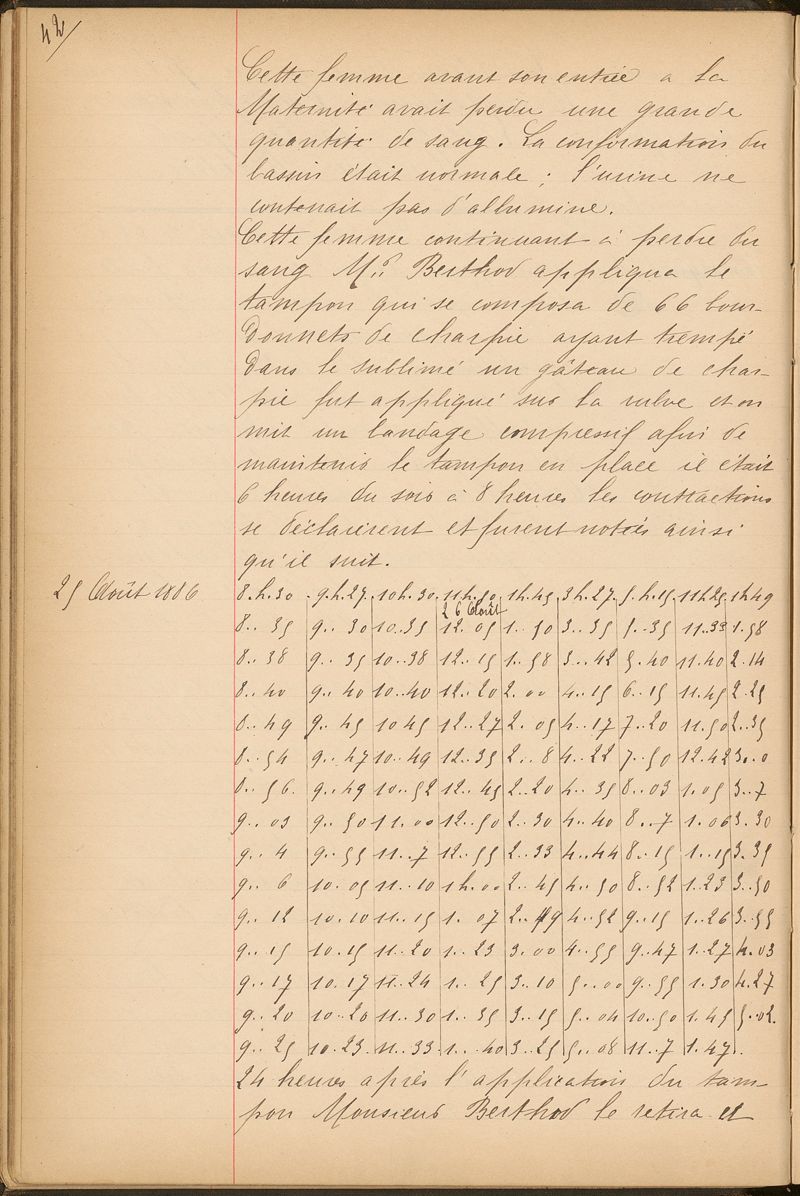 42
Cette femme avant son entrée a la
Maternité avait perdu une grande
quantité de sang. La conformation du
bassin était normale ; l'urine ne
contenait pas d'albumine.
Cette femme continuant à perdre du
sang Mr Berthod appliqua le
tampon qui se composa de 66 bour-
donnets de charpie ayant trempé
dans le sublimé un gâteau de char-
pie fut appliqué sur la vulve et on
mit un bandage compressif afin de
maintenir le tampon en place il était
6 heures du soir à 8 heures les contractions
se déclarèrent et furent notées ainsi
qu'il suit.
25 Août 1886 8.h.30 9.h.27 10h.30 11h.50 1h.45 3h.27 5.h.15 11h25 1h49
26 Août
8..35 9..30 10.35 12.05 1..50 3..35 5..35 11.33 1.58
8..38 9..35 10..38 12..15 1..58 3..42 5.40 11.40 2.14
8..40 9..40 10..40 12..20 2..00 4..15 6..15 11.45 2.25
8..49 9..45 10 45 12..27 2..05 4..17 7..20 11.50 2..35
8..54 9..47 10..49 12..35 2..8 4..22 7..50 12.42 3..0
8..56 9..49 10..52 12..45 2..20 4..35 8..03 1.05 3..7
9..03 9..50 11..00 12..50 2..30 4..40 8..7 1.06 3.30
9..4 9..55 11..7 12..55 2..33 4..44 8..15 1..15 3.35
9..6 10.05 11..10 1h.00 2..45 4..50 8..52 1.23 3..50
9..12 10.10 11..15 1.07 2..49 4..52 9..15 1..26 3..55
9..15 10.15 11..20 1..23 3.00 4..55 9..47 1..27 4.03
9..17 10.17 11..24 1..25 3..10 5..00 9..55 1.30 4.27
9..20 10..20 11..30 1..35 3..15 5..04 10..50 1.45 5.02.
9..25 10.23. 11..33. 1..40 3..25 5..08 11..7 1.47.
24 heures après l'application du tam-
pon Monsieur Berthod le retira et